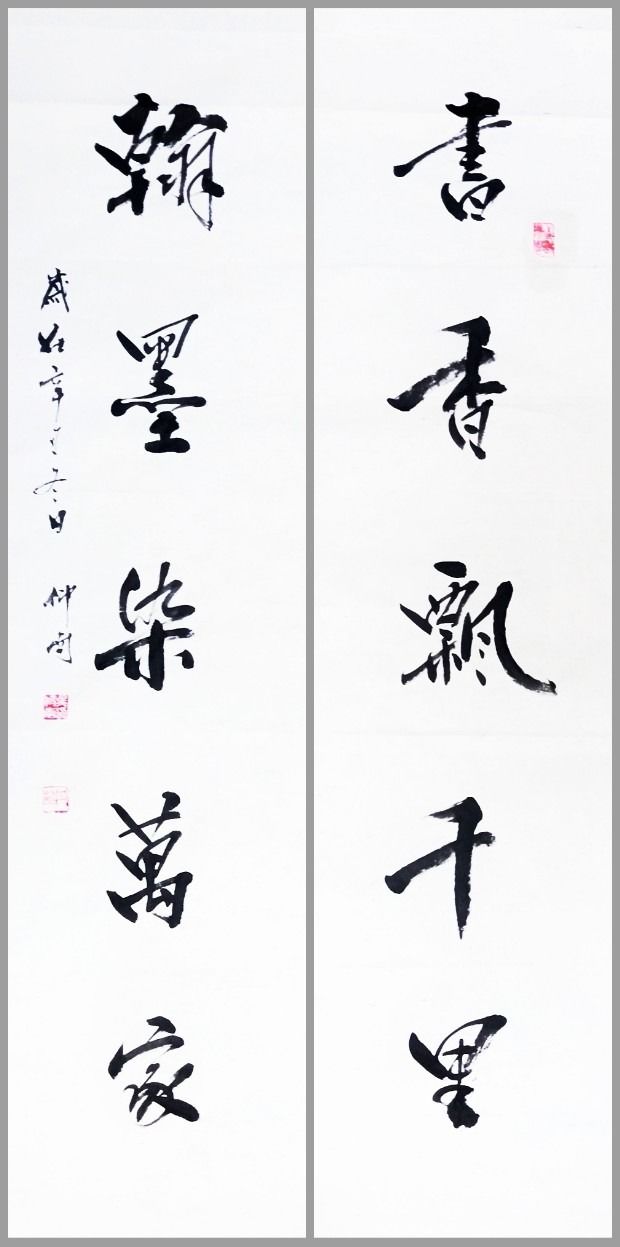 書香飄千里
翰墨染萬家
歲在辛
冬日
仲